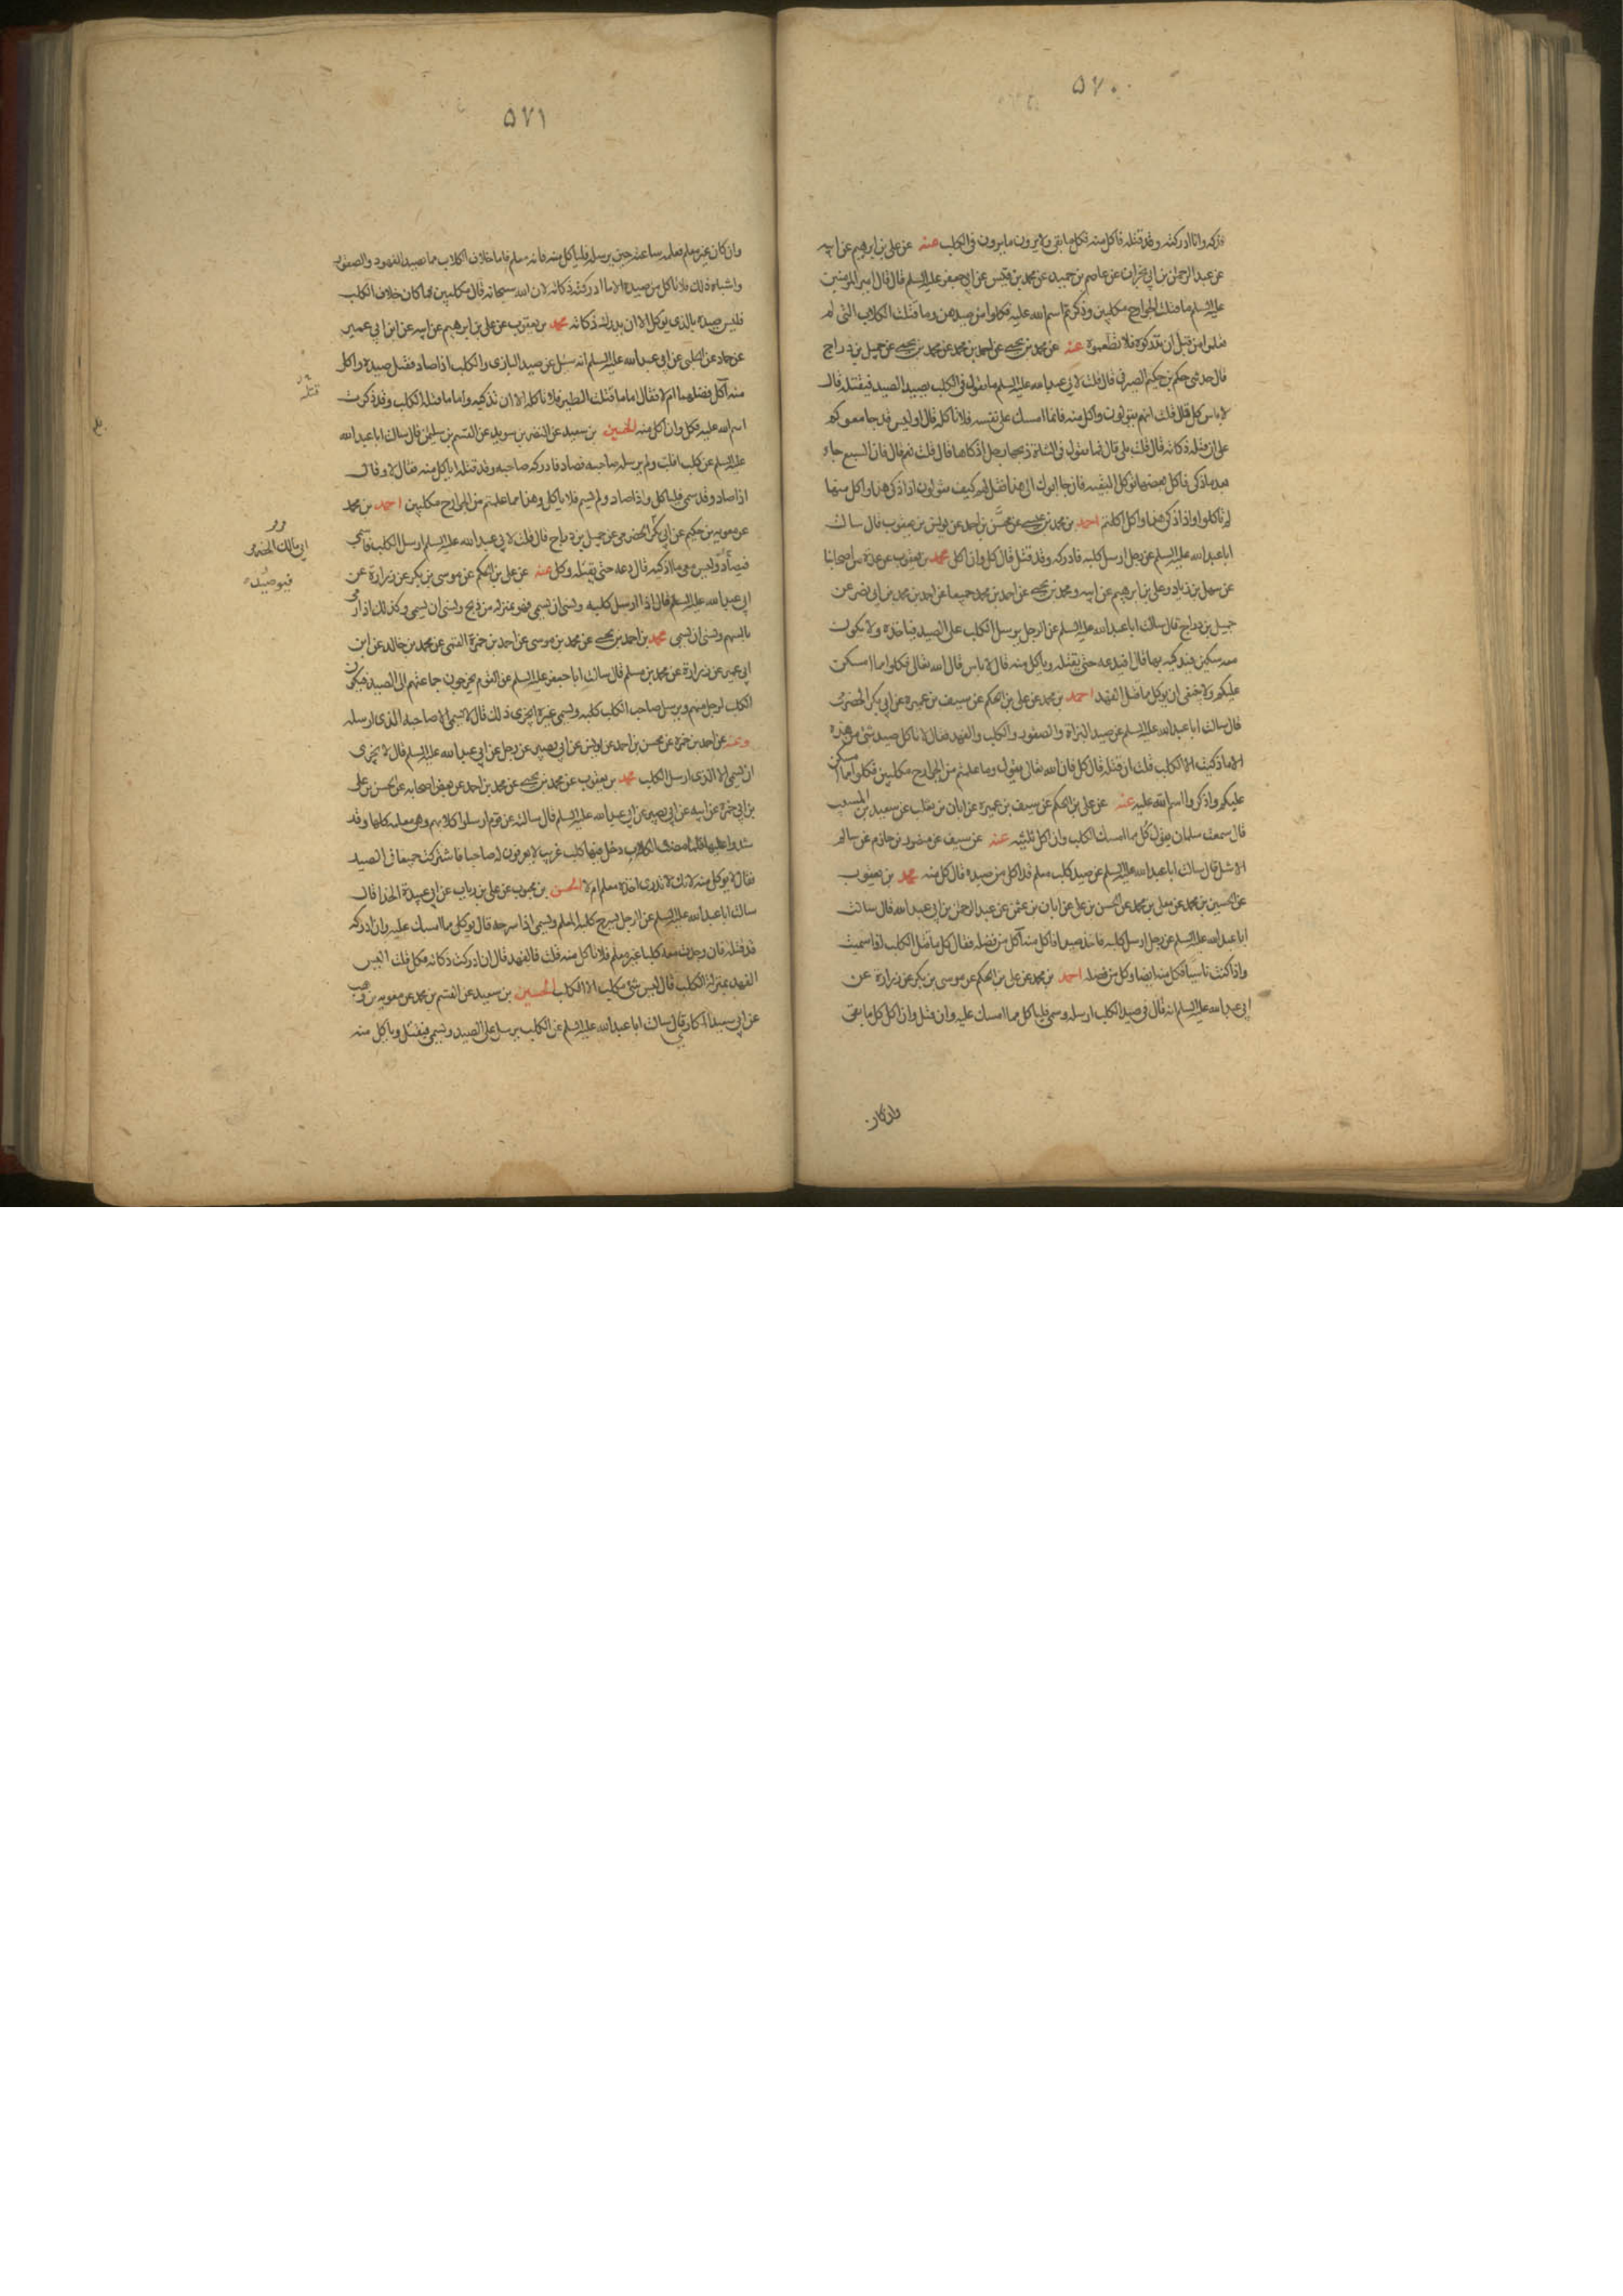 ۵۷۰
فذكه وانا ادركته وقد قتله فاكل منه فكل ما بقى ولا يرون ما يرون فى الكلب عنه عن على بن ابرهيم عن ابيه
عن عبد الرحمن بن ابى نجران عن عاصم بن حميد عن محمد بن قيس عن ابى جعفر عليه السلم قال قال امير المومنين
عليه السلم ما قتلت الجوارح مكلبين وذكرتم اسم الله عليه فكلوا من صيدهن وما قتلت الكلاب التى لم
تعلموا من قبل ان تدركوه فلا تطعموه عنه عن محمد بن يحيى عن احمد بن محمد عن محمد بن يحيى عن جميل بن دراج
قال حدثنى حكم بن حكيم الصيرفى قال قلت لابى عبد الله عليه السلم ما تقول فى الكلب يصيد الصيد فيقتله قال
لا باس كل قال قلت انهم يقولون واكل منه فانما امسك على نفسه فلا تاكله قال اوليس قد جامعوكم
على ان قتله ذكاته قال قلت بلى قال فما تقول فى الشاة ذبحها رجل اذكاها قال قلت نعم قال فان السبع جاء
بعد ما ذكى فاكل بعضها توكل البقيه فاذا جاابوك الى هذا فقل لهم كيف تقولون اذا ذكى هذا واكل منها
لم تاكلوا واذا ذكى هذا واكل اكلتم احمد بن محمد بن عيسى عن محسن بن احمد عن يونس بن يعقوب قال سالت
ابا عبد الله عليه السلم عن رجل ارسل كلبه فادركه وقد قتل قال كل وان اكل محمد بن يعقوب عن عدة من اصحابنا
عن سهل بن زياد وعلى بن ابرهيم عن ابيه ومحمد بن يحيى عن احمد بن محمد جميعا عن احمد بن محمد بن ابى نصر عن
جميل بن دراج قال سالت ابا عبد الله عليه السلم عن الرجل يرسل الكلب على الصيد فياخذه ولا يكون
معه سكين فيذكيه بها قال افيدعه حتى يقتله وياكل منه قال لا باس قال الله تعالى فكلوا مما امسكن
عليكم ولا ينبغى ان يوكل ما قتل الفهد احمد بن محمد عن على بن الحكم عن سيف بن عميره عن ابى بكر الحضرمى
قال سالت ابا عبد الله عليه السلم عن صيد البزاة والصقور والكلب والفهد فقال لا تاكل صيد شئ من هذه
الا ما ذكيت الا الكلب قلت ان قتله قال كل فان الله تعالى يقول وما علمتم من الجوارح مكلبين فكلوا مما امسكن
عليكم واذكروا اسم الله عليه عنه عن على بن الحكم عن سيف بن عميره عن ابان بن تغلب عن سعيد بن المسيب
قال سمعت سلمان يقول كل مما امسك الكلب وان اكل ثلثيه عنه عن سيف عن منصور بن حازم عن سالم
الاشل قال سالت ابا عبد الله عليه السلم عن صيد كلب معلم قد اكل من صيده قال كل منه محمد بن يعقوب
عن الحسين بن محمد عن معلى بن محمد عن الحسن بن على عن ابان بن عثمن عن عبد الرحمن بن ابى عبد الله قال سالت
ابا عبد الله عليه السلم عن رجل ارسل كلبه فاخذ صيدا فاكل منه آكل من فضله فقال كل ما قتل الكلب اذا سميت
واذا كنت ناسيا فكل منه ايضا وكل من فضله احمد بن محمد عن على بن الحكم عن موسى بن بكر عن زرارة عن
ابى عبد الله عليه السلم انه قال فى صيد الكلب ارسله وسمى فلياكل مما امسك عليه وان قتل وان اكل كل ما بقى
وان كان
۵۷۱
وان كان غير معلم فعلمه ساعته حين يرسله فلياكل منه فانه معلم فاما خلاف الكلاب مما يصيد الفهود والصقور
واشباه ذلك فلا تاكل من صيده الا ما ادركت ذكاته لان الله سبحانه قال مكلبين فما كان خلاف الكلب
فليس صيده بالذى يوكل الا ان يدرك ذكاته محمد بن يعقوب عن على بن ابرهيم عن ابيه عن ابن ابى عمير
عن حماد عن الحلبى عن ابى عبد الله عليه السلم انه سئل عن صيد البازى والكلب اذا صاد فقتل صيده واكل
منه آكل فضلهما ام لا فقال اما ما قتلت الطير فلا تاكله الا ان تذكيه واما ما قتله الكلب وقد ذكرت
اسم الله عليه فكل وان اكل منه الحسين بن سعيد عن النضر بن سويد عن القسم بن سليمن قال سالت ابا عبد الله
عليه السلم عن كلب افلت ولم يرسله صاحبه فصاد فادركه صاحبه وقد قتله اياكل منه فقال لا وقال
اذا صاد وقد سمى فلياكل واذا صاد ولم يسم فلا ياكل وهذا مما علمتم من الجوارح مكلبين احمد بن محمد
عن معويه بن حكيم عن ابى بكر الحضرمى عن جميل بن دراج قال قلت لابى عبد الله عليه السلم ارسل الكلب فاسمى
فيصاد وليس معى ما اذكيه قال دعه حتى يقتله وكل عنه عن على بن الحكم عن موسى بن بكر عن زرارة عن
ابى عبد الله عليه السلم قال اذا ارسل كلبه ونسى ان يسمى فهو بمنزله من ذبح ونسى ان يسمى وكذلك اذا رمى
بالسهم ونسى ان يسمى محمد بن احمد بن يحيى عن محمد بن موسى عن احمد بن حمزة القمى عن محمد بن خالد عن ابن
ابى عمير عن زرارة عن محمد بن مسلم قال سالت ابا جعفر عليه السلم عن القوم يخرجون جماعتهم الى الصيد فيكون
الكلب لرجل منهم ويرسل صاحب الكلب كلبه ويسمى غيره ايجزى ذلك قال لا يسمى الا صاحبه الذى ارسله
وعنه عن احمد بن حمزة عن محسن بن احمد عن يونس عن ابى بصير عن رجل عن ابى عبد الله عليه السلم قال لا يجزى
ان يسمى الا الذى ارسل الكلب محمد بن يعقوب عن محمد بن يحيى عن محمد بن احمد عن بعض اصحابه عن الحسن بن على
بن ابى حمزة عن ابيه عن ابى بصير عن ابى عبد الله عليه السلم قال سالته عن قوم ارسلوا كلابهم وهى معلمه كلها وقد
سموا عليها فلما مضت الكلاب دخل فيها كلب غريب لا يعرفون له صاحبا فاشتركت جميعا فى الصيد
فقال لا يوكل منه لانك لا تدرى اخذه معلم ام لا الحسن بن محبوب عن على بن رياب عن ابى عبيدة الحذا قال
سالت ابا عبد الله عليه السلم عن الرجل يسرح كلبه المعلم ويسمى اذا سرحه قال يوكل مما امسك عليه وان ادركه
قد قتله فان وجدت معه كلبا غير معلم فلا تاكل منه قلت فالفهد قال ان ادركت ذكاته فكل قلت اليس
الفهد بمنزلة الكلب قال ليس شئ مكلب الا الكلب الحسين بن سعيد عن القسم بن محمد عن معويه بن وهب
عن ابى سعيد المكارى قال سالت ابا عبد الله عليه السلم عن الكلب يرسل على الصيد ويسمى فيقتل وياكل منه
قتله
ابى مالك الحضرمى
فيوصيده